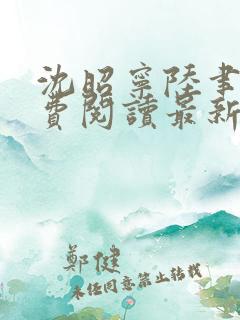 沈昭寧陸書
費閱讀最新
鄭健
未經同意禁止轉載